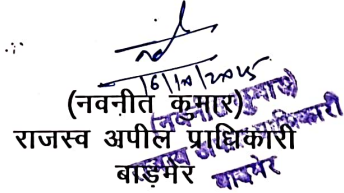 16/10/2025
(नवनीत कुमार)
राजस्व अपील प्राधिकारी
बाड़मेर
(नवनीत कुमार)
राजस्व अपील प्राधिकारी
बाड़मेर